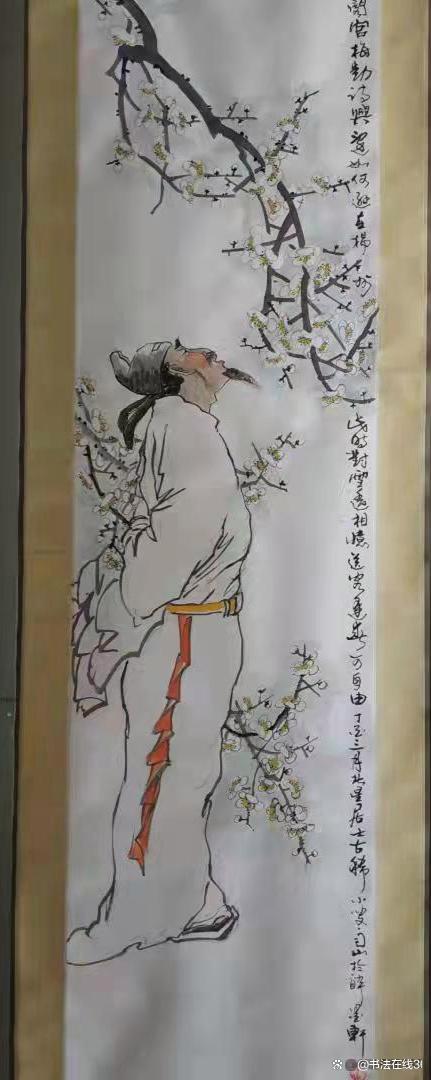 閣官梅動詩興還如何遜在揚州此時對雪遥相憶送客逢春可自由丁酉三月星居士古稀小叟山於醉墨軒
@书法在线30